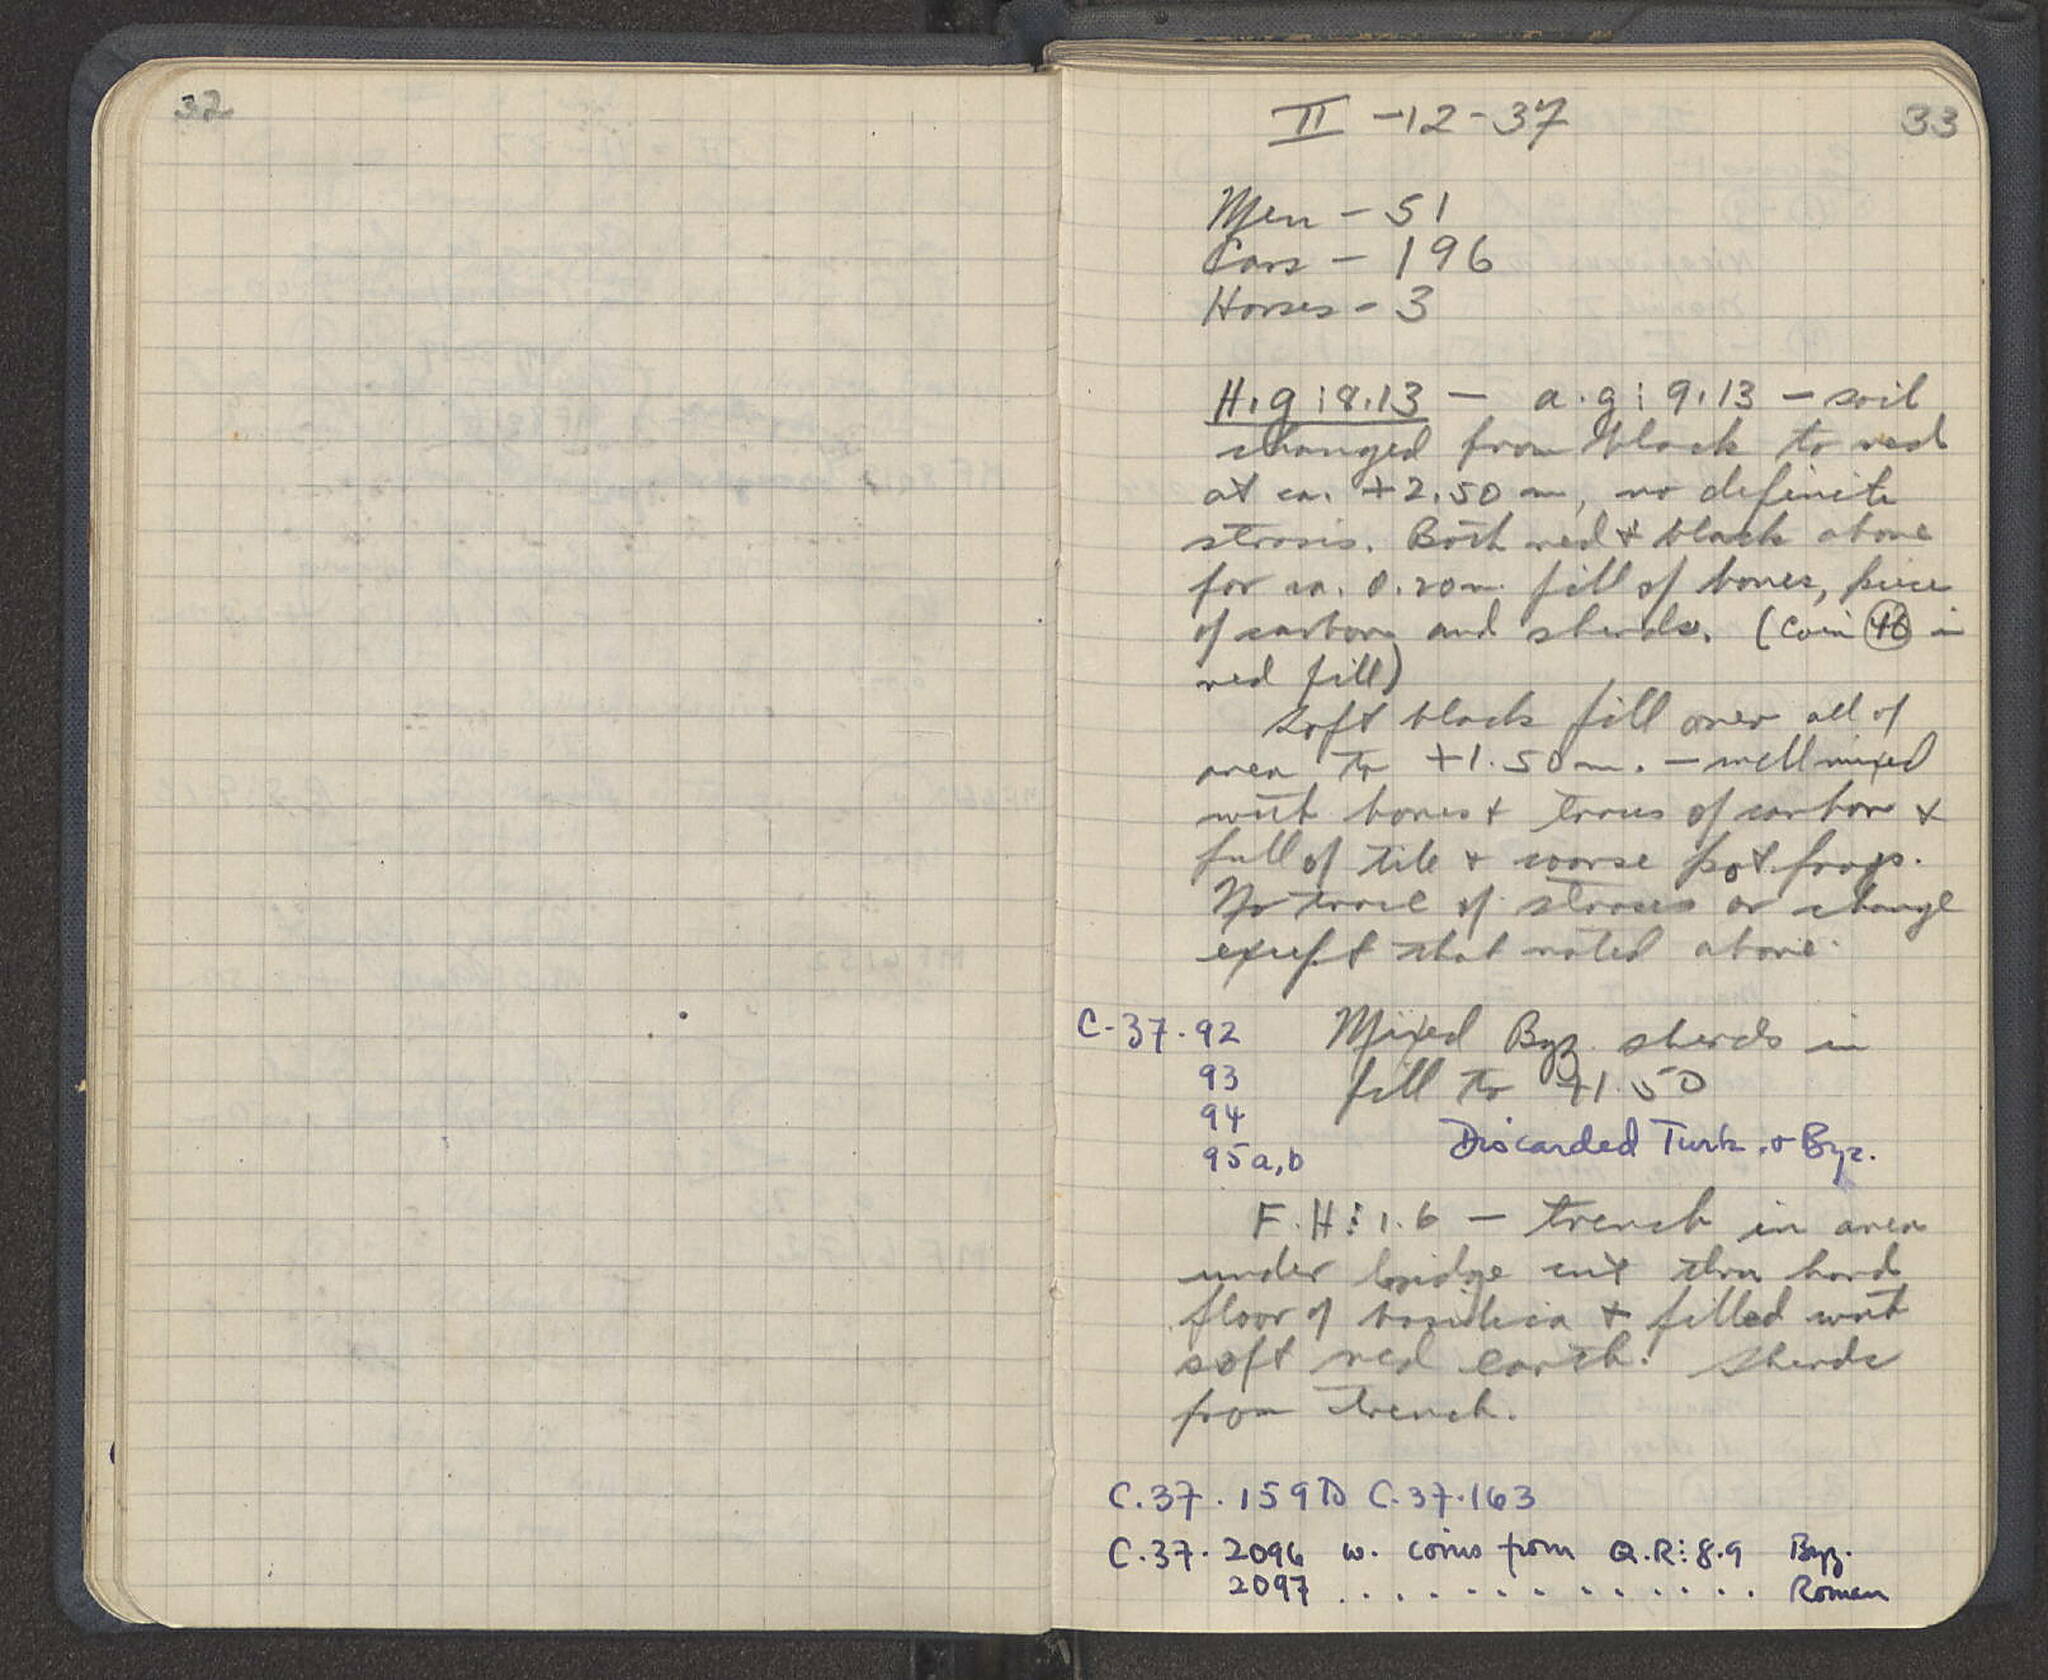 32
33
II - 12 - 37
Men - 51
Cars - 196
Horses - 3
H.g:8.13 - a.g:9.13 - soil
changed from black to red
at ca. +2.50 m, no definite
strosis. Both red & black above
for ca. 0.20 m. fill of bones, piece
of carbon and sherds. (Coin 46 in
red fill)
Soft black fill over all of
area to +1.50 m. - well mixed
with bones & traces of carbon &
full of tile & coarse pot frags.
No trace of stroses or change
except that noted above.
C-37-92 Mixed Byz. sherds in
93 fill to +1.50
94
95a,b Discarded Turk. & Byz.
F.H:1.6 - trench in area
under bridge cut thru hard
floor of basilica & filled with
soft red earth. Sherds
from trench.
C.37.159 to C.37.163
C.37.2096 w. coins from Q.R:8.9 Byz.
2097 . . . . . . . . . . . . . . Roman